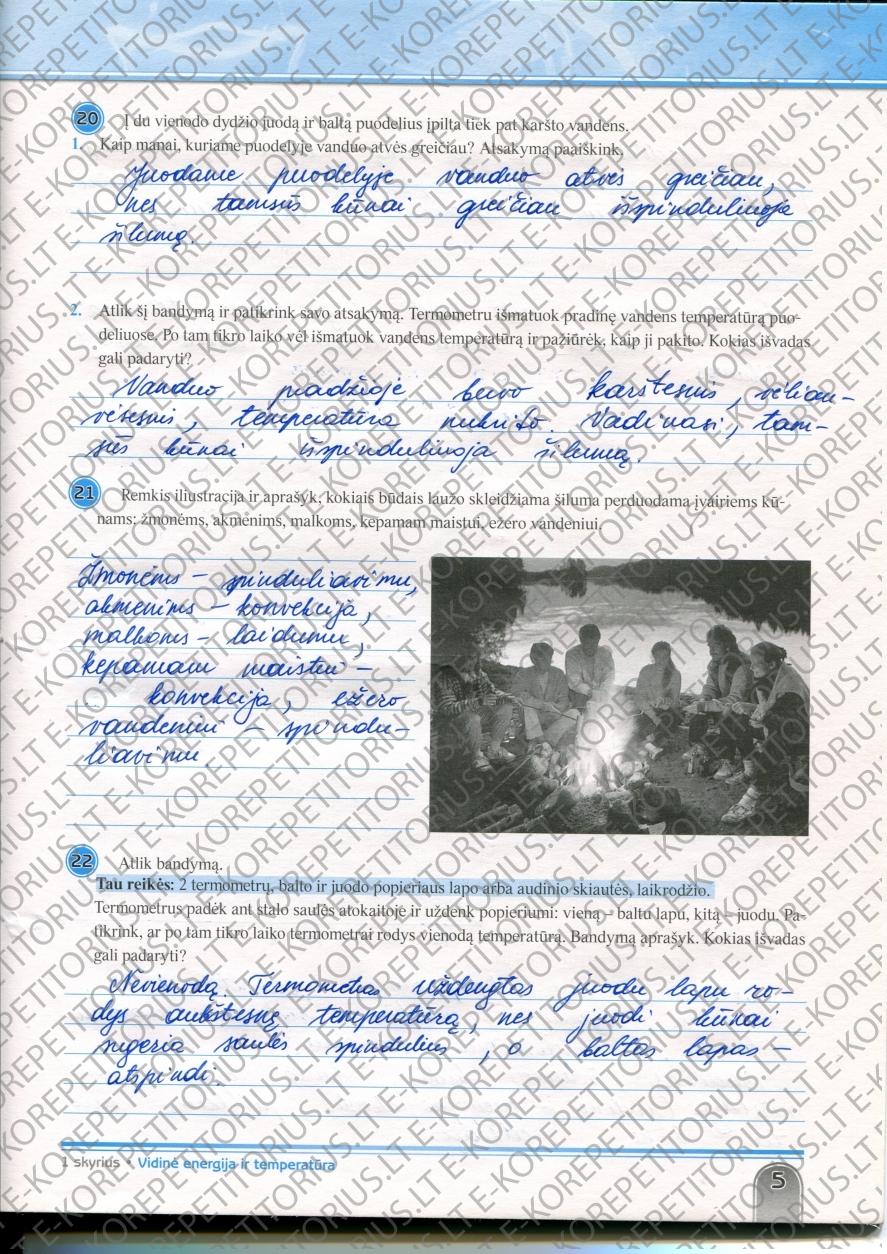 20 Į du vienodo dydžio juodą ir baltą puodelius įpilta tiek pat karšto vandens.
1. Kaip manai, kuriame puodelyje vanduo atvės greičiau? Atsakymą paaiškink.
Juodame puodelyje vanduo atvės greičiau,
nes tamsūs kūnai greičiau išspinduliuoja
šilumą.
2. Atlik šį bandymą ir patikrink savo atsakymą. Termometru išmatuok pradinę vandens temperatūrą puo-
deliuose. Po tam tikro laiko vėl išmatuok vandens temperatūrą ir pažiūrėk, kaip ji pakito. Kokias išvadas
gali padaryti?
Vanduo pradžioje buvo karštesnis, vėliau -
vėsesnis, temperatūra nukrito. Vadinasi, tam-
sūs kūnai išspinduliuoja šilumą.
21 Remkis iliustracija ir aprašyk, kokiais būdais laužo skleidžiama šiluma perduodama įvairiems kū-
nams: žmonėms, akmenims, malkoms, kepamam maistui, ežero vandeniui.
Žmonėms - spinduliavimu,
akmenims - konvekcija,
malkoms - laidumu,
kepamam maistui -
konvekcija, ežero
vandeniui - spindu-
liavimu.
22 Atlik bandymą.
Tau reikės: 2 termometrų, balto ir juodo popieriaus lapo arba audinio skiautės, laikrodžio.
Termometrus padėk ant stalo saulės atokaitoje ir uždenk popieriumi: vieną – baltu lapu, kitą – juodu. Pa-
tikrink, ar po tam tikro laiko termometrai rodys vienodą temperatūrą. Bandymą aprašyk. Kokias išvadas
gali padaryti?
Nevienodą. Termometras uždengtas juodu lapu ro-
dys aukštesnę temperatūrą, nes juodi kūnai
sugeria saulės spindulius, o baltas lapas -
atspindi.
1 skyrius • Vidinė energija ir temperatūra
5
E-KOREPETITORIUS.LT